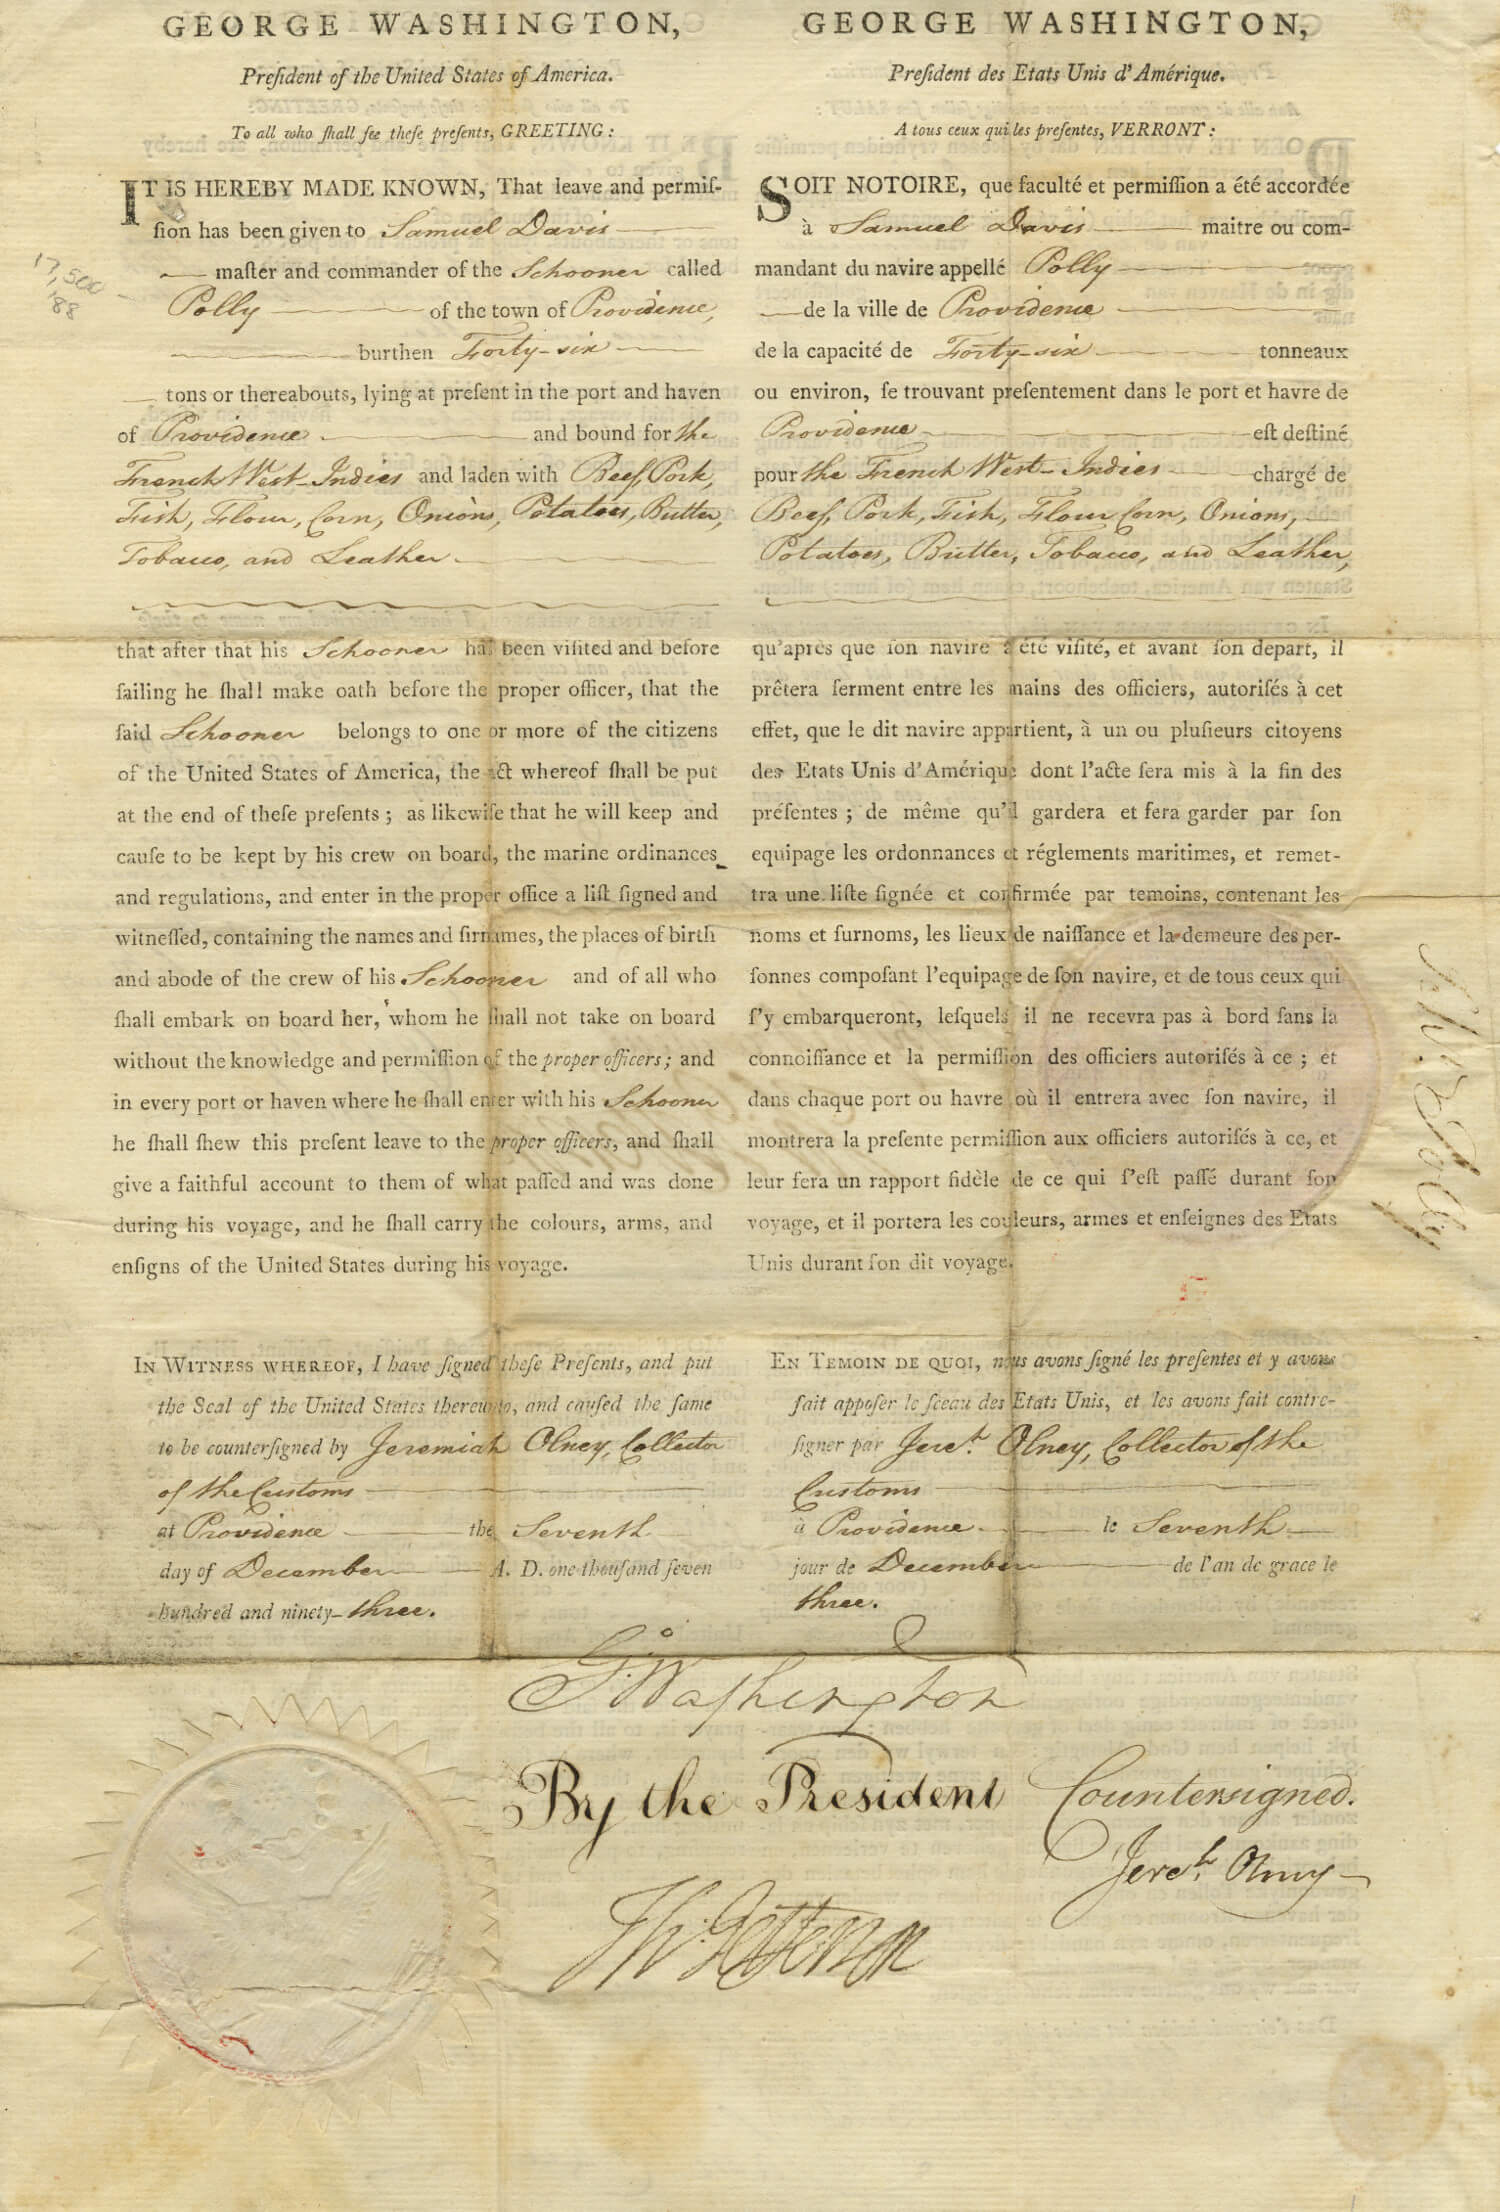 GEORGE WASHINGTON,
Preſident of the United States of America.
To all who ſhall ſee theſe preſents, GREETING:
IT IS HEREBY MADE KNOWN, That leave and permiſ-
ſion has been given to Samuel Davis
maſter and commander of the Schooner called
Polly of the town of Providence,
burthen Forty-six
tons or thereabouts, lying at preſent in the port and haven
of Providence and bound for the
French West-Indies and laden with Beef, Pork,
Fish, Flour, Corn, Onions, Potatoes, Butter,
Tobacco, and Leather
that after that his Schooner has been viſited and before
ſailing he ſhall make oath before the proper officer, that the
ſaid Schooner belongs to one or more of the citizens
of the United States of America, the act whereof ſhall be put
at the end of theſe preſents; as likewiſe that he will keep and
cauſe to be kept by his crew on board, the marine ordinances
and regulations, and enter in the proper office a liſt ſigned and
witneſſed, containing the names and ſirnames, the places of birth
and abode of the crew of his Schooner and of all who
ſhall embark on board her, whom he ſhall not take on board
without the knowledge and permiſſion of the proper officers; and
in every port or haven where he ſhall enter with his Schooner
he ſhall ſhew this preſent leave to the proper officers, and ſhall
give a faithful account to them of what paſſed and was done
during his voyage, and he ſhall carry the colours, arms, and
enſigns of the United States during his voyage.
IN WITNESS WHEREOF, I have ſigned theſe Preſents, and put
the Seal of the United States thereunto, and cauſed the ſame
to be counterſigned by Jeremiah Olney, Collector
of the Customs
at Providence the Seventh
day of December A. D. one thouſand ſeven
hundred and ninety-three.
GEORGE WASHINGTON,
Preſident des Etats Unis d'Amérique.
A tous ceux qui les preſentes, VERRONT:
SOIT NOTOIRE, que faculté et permiſſion a été accordée
à Samuel Davis maitre ou com-
mandant du navire appellé Polly
de la ville de Providence
de la capacité de Forty-six tonneaux
ou environ, ſe trouvant preſentement dans le port et havre de
Providence eſt deſtiné
pour the French West-Indies chargé de
Beef, Pork, Fish, Flour Corn, Onions,
Potatoes, Butter, Tobacco, and Leather,
qu'après que ſon navire a été viſité, et avant ſon depart, il
prêtera ſerment entre les mains des officiers, autoriſés à cet
effet, que le dit navire appartient, à un ou pluſieurs citoyens
des Etats Unis d'Amérique dont l'acte ſera mis à la fin des
préſentes; de même qu'il gardera et fera garder par ſon
equipage les ordonnances et réglements maritimes, et remet-
tra une liſte ſignée et confirmée par temoins, contenant les
noms et ſurnoms, les lieux de naiſſance et la demeure des per-
ſonnes compoſant l'equipage de ſon navire, et de tous ceux qui
ſ'y embarqueront, leſquels il ne recevra pas à bord ſans la
connoiſſance et la permiſſion des officiers autoriſés à ce; et
dans chaque port ou havre où il entrera avec ſon navire, il
montrera la preſente permiſſion aux officiers autoriſés à ce, et
leur fera un rapport fidèle de ce qui ſ'eſt paſſé durant ſon
voyage, et il portera les couleurs, armes et enſeignes des Etats
Unis durant ſon dit voyage.
EN TEMOIN DE QUOI, nous avons ſigné les preſentes et y avons
fait appoſer le ſceau des Etats Unis, et les avons fait contre-
ſigner par Jereh. Olney, Collector of the
Customs
à Providence le Seventh
jour de December de l'an de grace le
three.
Go. Washington
By the President
Th: Jefferson
Countersigned.
Jereh. Olney
17,500
'88
Polly